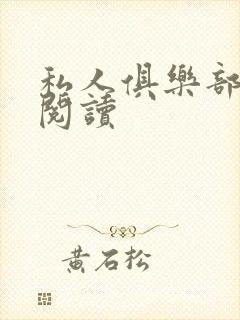 私人俱樂部
閱讀
黃石松